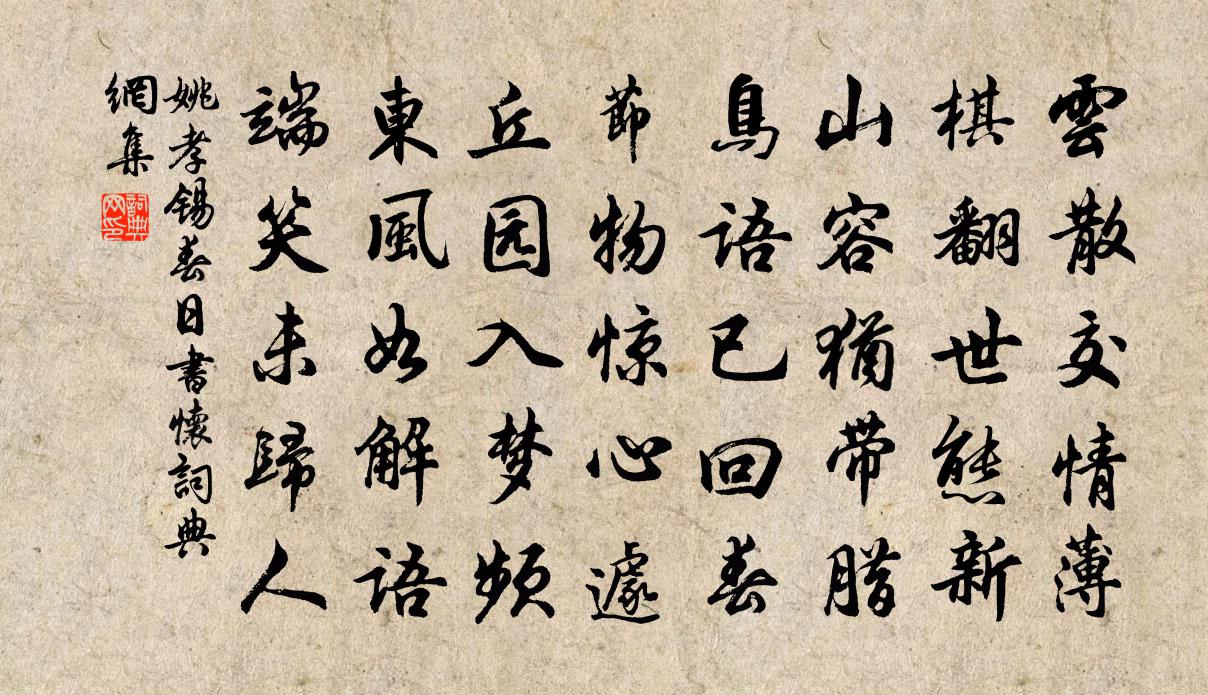 雲散交情薄
棋翻世態新
山容猶带腊
鳥語已回春
節物惊心遽
丘园入梦频
東風如解語
端笑未歸人
姚孝錫春日書懷詞典
網集
詞典网印